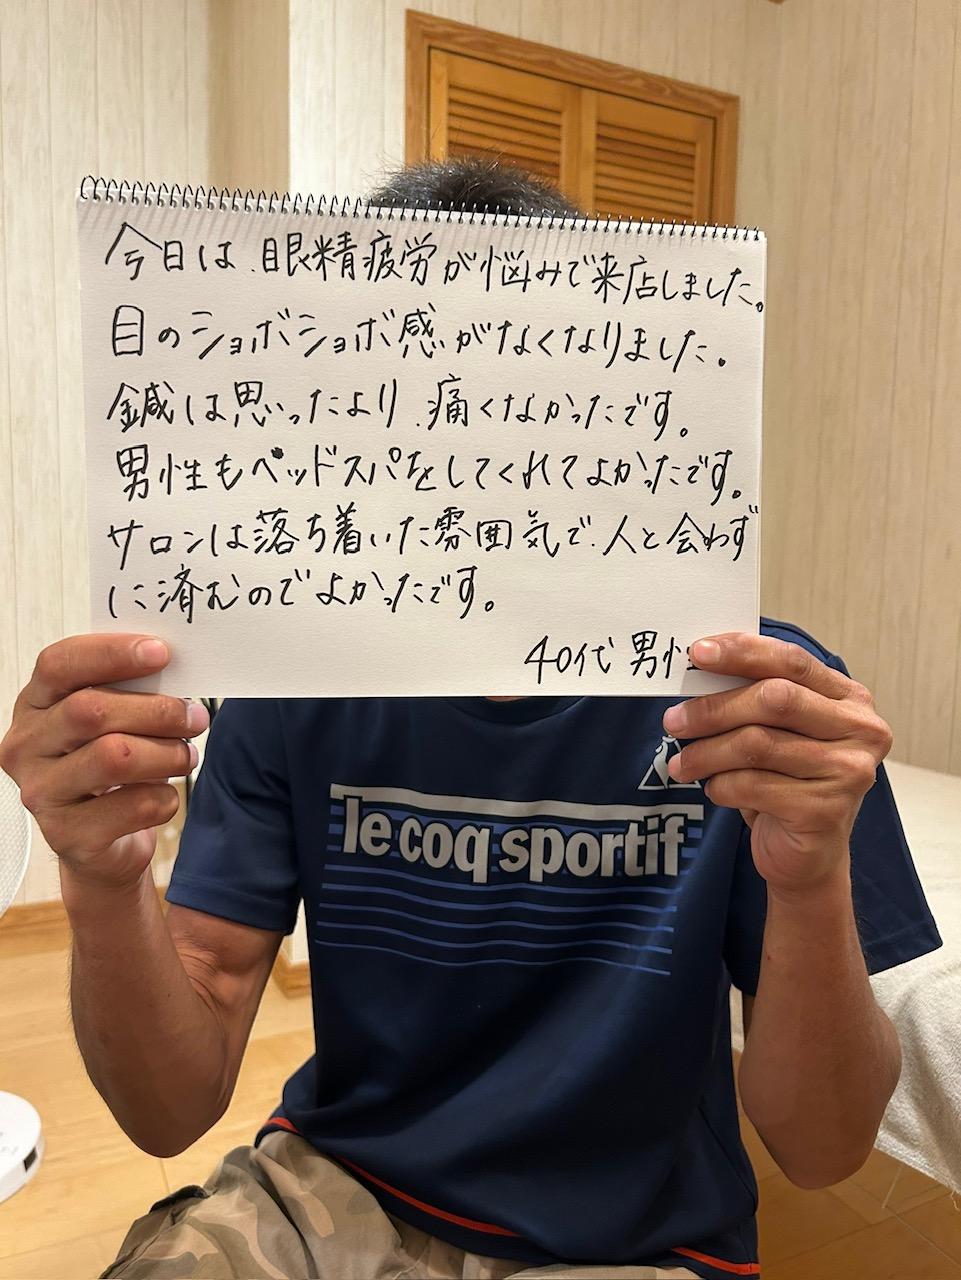 今日は、眼精疲労が悩みで来店しました。
目のショボショボ感がなくなりました。
鍼は思ったより、痛くなかったです。
男性もヘッドスパをしてくれてよかったです。
サロンは落ち着いた雰囲気で、人と会わず
に済むのでよかったです。
40代 男性
le coq sportif